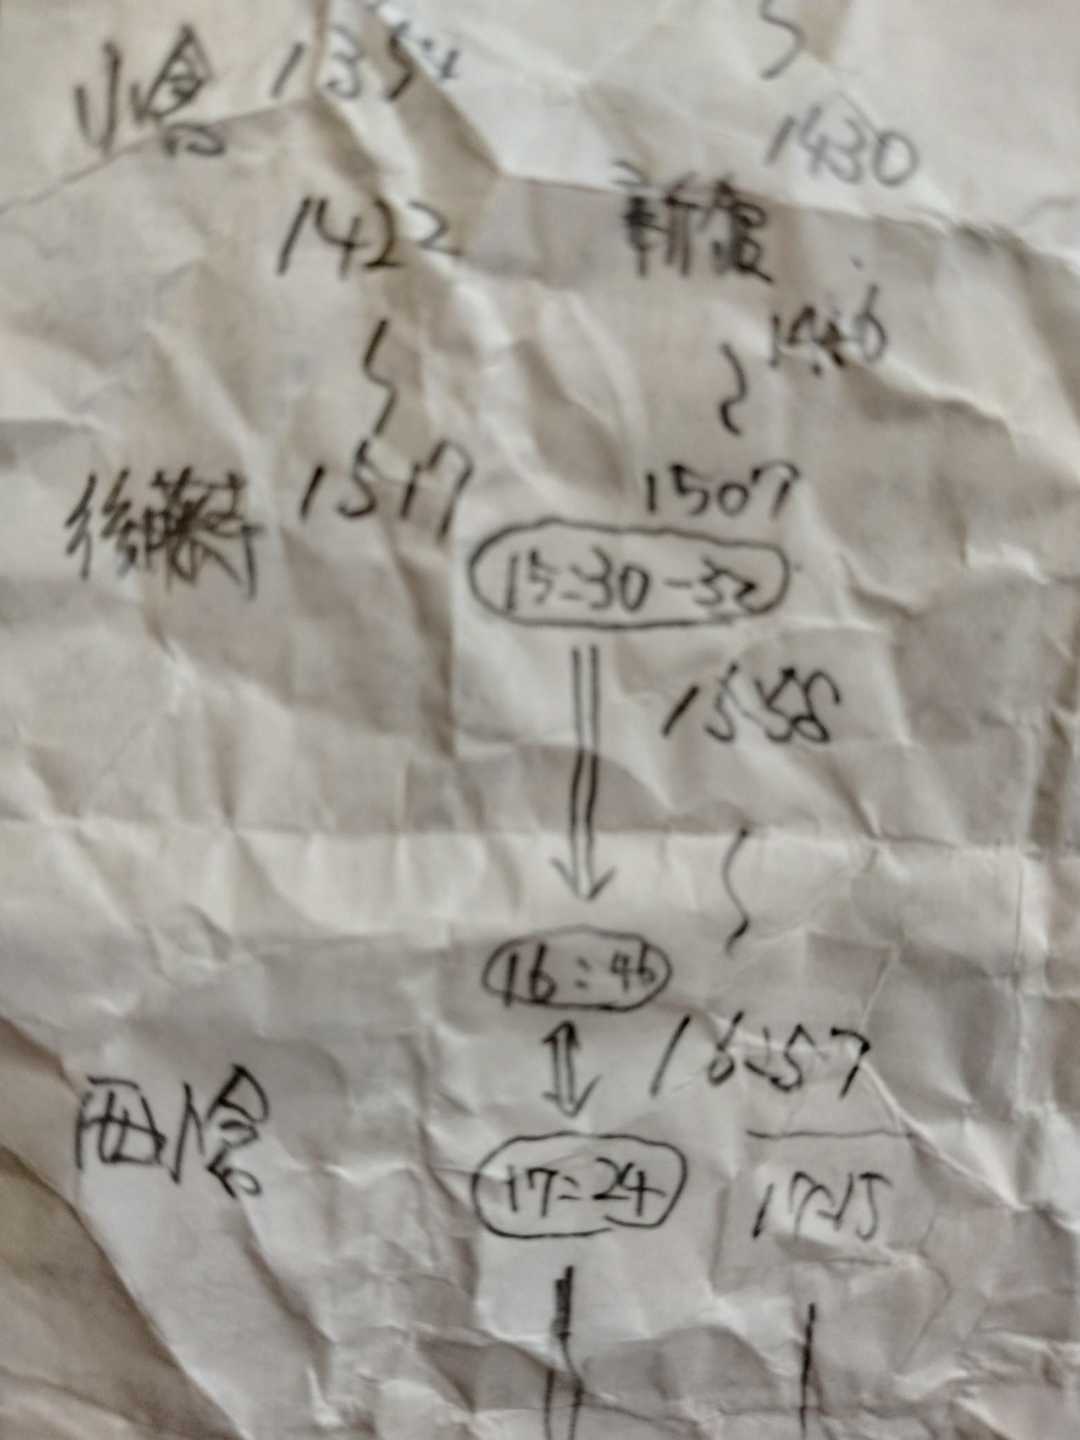 小倉 1354
1430
1422 新飯
1446
後藤寺 1517 1507
15:30-32
1558
16:46
16:57
西小倉 17:24 17:15